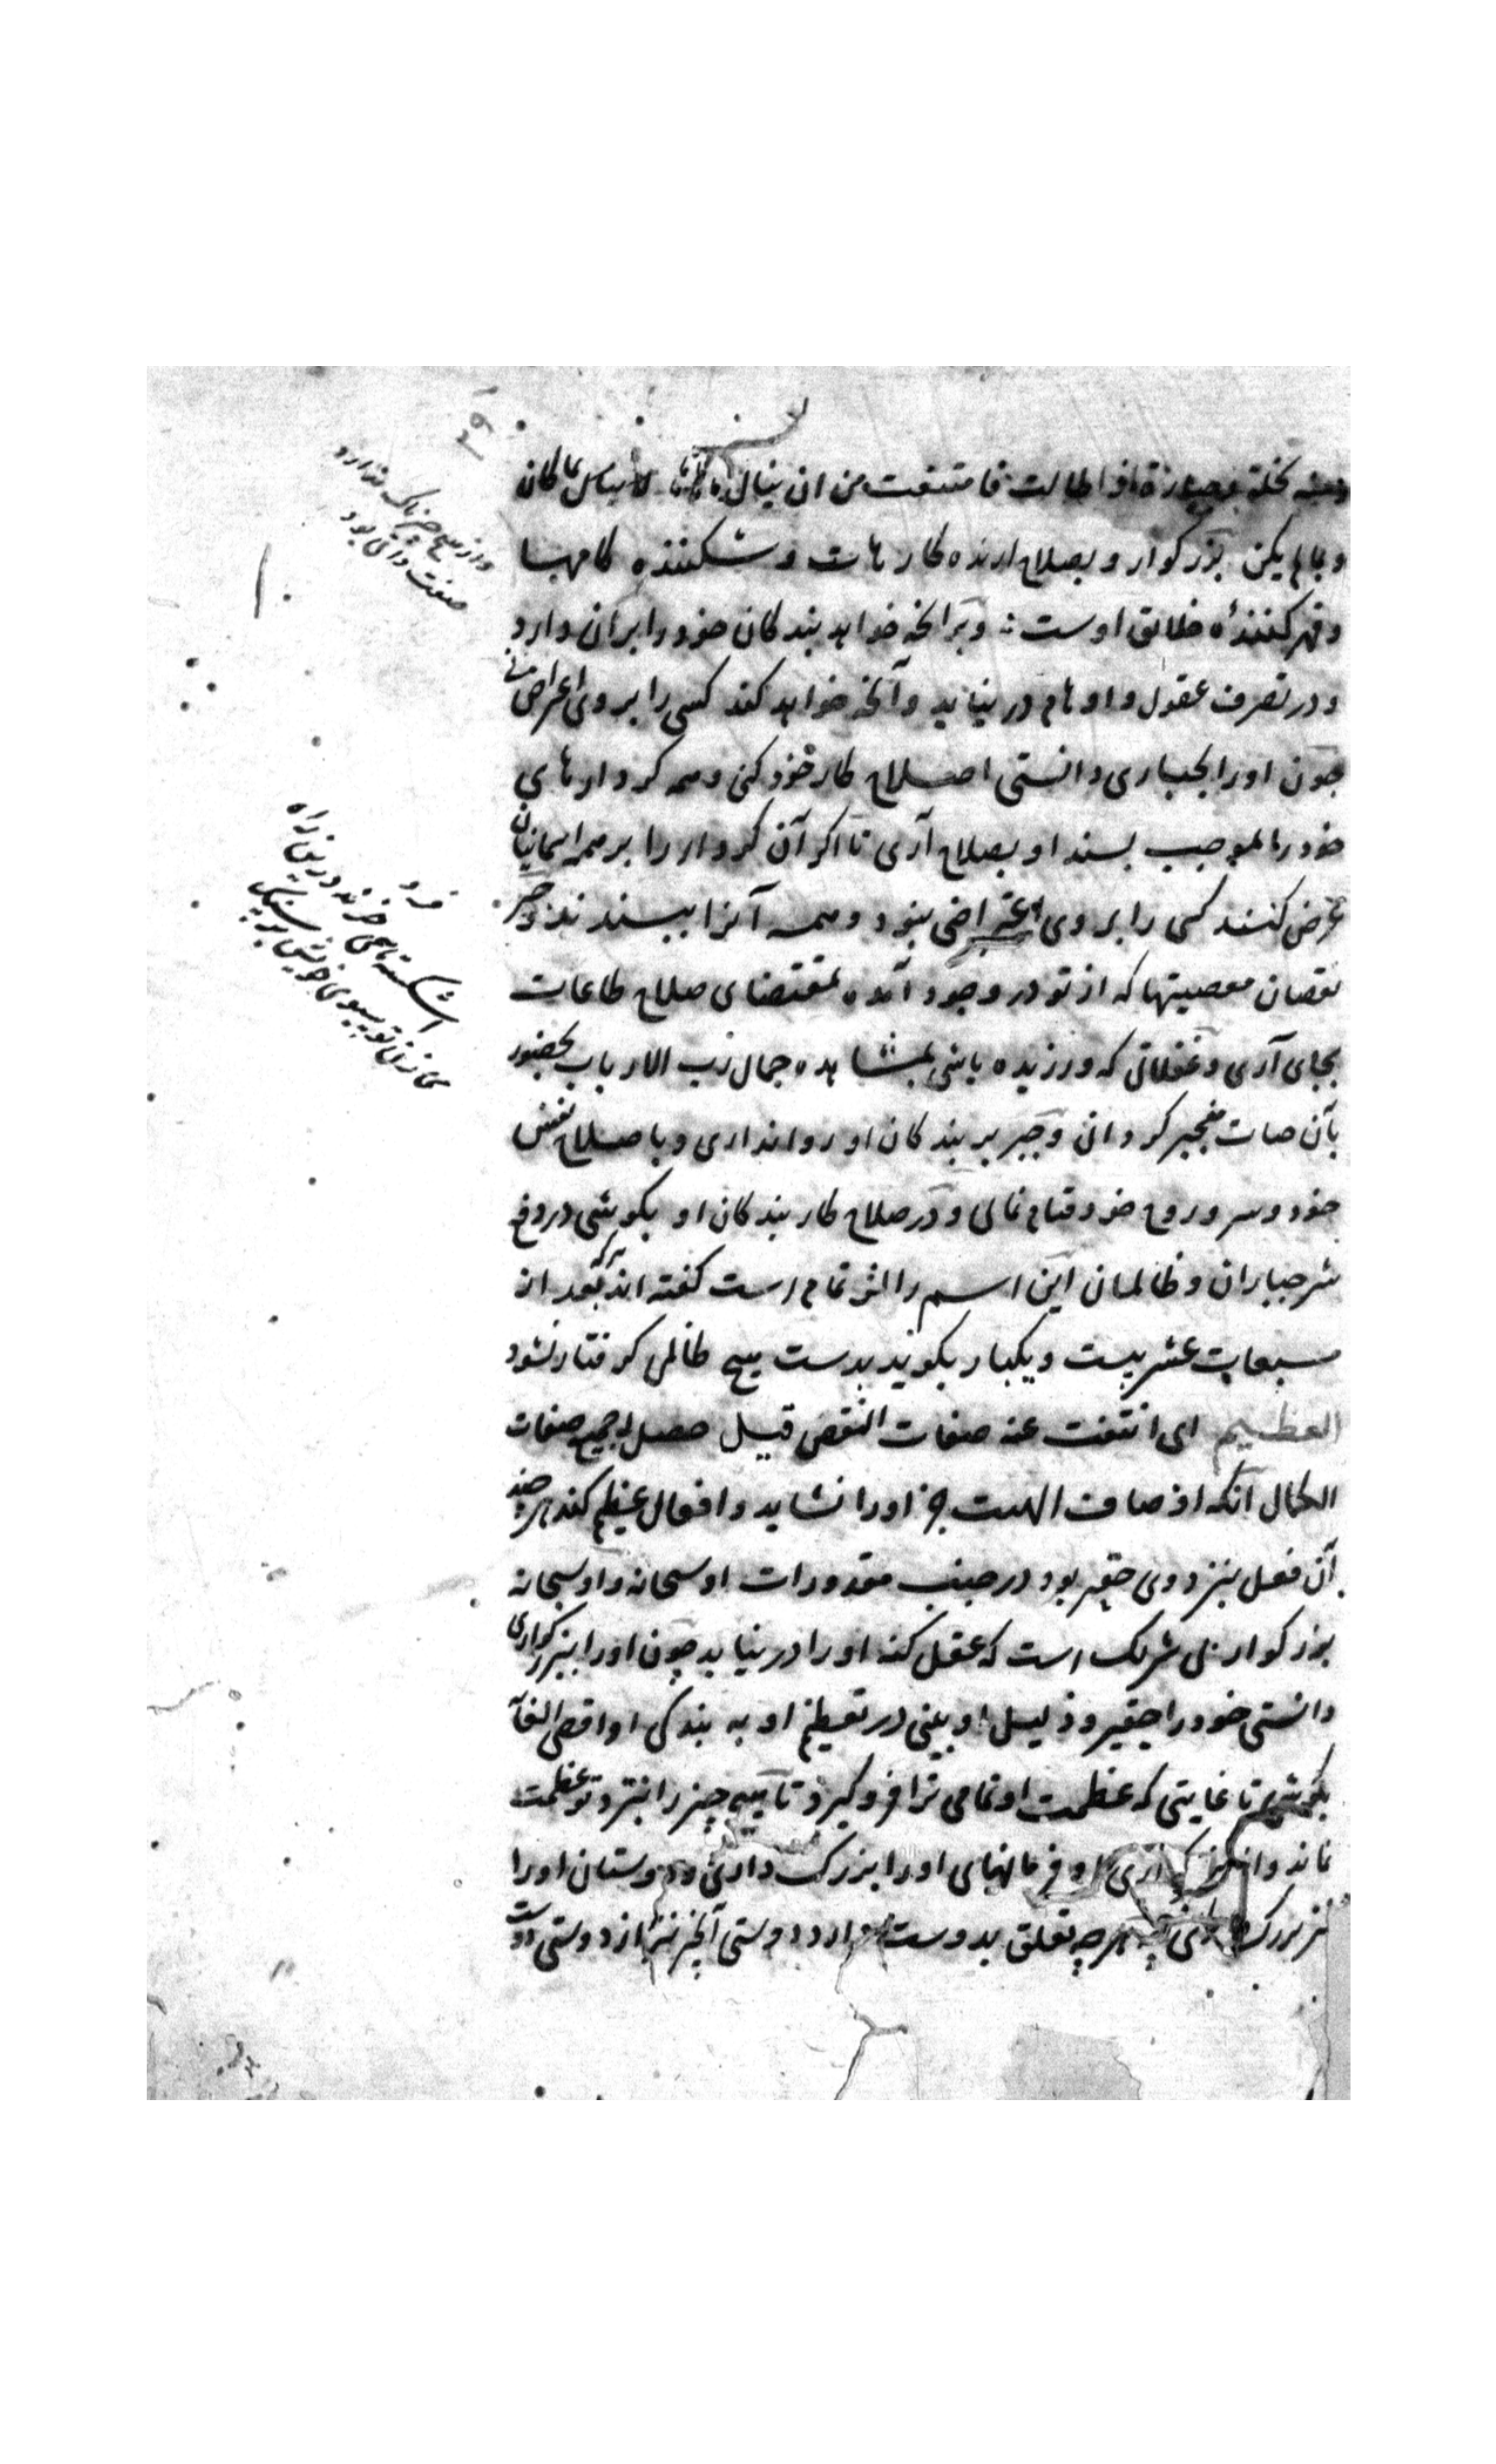 ومنه نخلة جبارة اذا طالت فامتنعت من ان ینال لا یبالی بما کان
و بما لم یکن بزرکوار و بصلاح ارنده کارهاست و شکننده کامها
و قهر کنندهٔ خلائق اوست و برانچه خواهد بندکان خود را بران دارد
و در تصرف عقول و اوهام در نیاید و آنچه خواهد کند کسی را بر وی اعتراض نی
چون او را بجباری دانستی اصلاح کار خود کنی و همه کردارهای
خود را بموجب پسند او بصلاح آری تا اکر آن کردار را بر همه اسمانیان
عرض کنند کسی را بر وی اعتراضی نبود و همه آنرا بپسندند و جبر
نقصان معصیتها که از تو در وجود آمده بمقتضای صلاح طاعات
بجای آری و غفلاتی که ورزیده باشی بمشاهده جمال رب الارباب بحضور
بآن صات منجبر کردانی و جبر بر بندکان او روا نداری و باصلاح نفس
خود و سر و روح خود قیام نمائی و در صلاح کار بندکان او بکوشی در دفع
شر جباران و ظالمان این اسم را اثر تمام است کفته اند هرکه بعد از
مسبعات عشر بیست و یکبار بکوید بدست هیچ ظالمی کرفتار نشود
العظیم ای انتفت عنه صفات النقص قیل حصل له جمیع صفات
الکمال آنکه اوصاف الهیت جز او را نشاید و افعال عظیم کند هرچند
آن فعل بنزد وی حقیر بود در جنب مقدورات او سبحانه و او سبحانه
بزرکوار بی شریک است که عقل کنه او را در نیابد چون او را ببزرکواری
دانستی خود را حقیر و ذلیل او بینی در تعظیم او به بندکی او اقصی الغایة
بکوشی تا غایتی که عظمت او تمامی ترا فرو کیرد تا هیچ چیز را بنزد تو عظمت
نماند و فرمانهای او را بزرک داری و دوستان او را
نیز بزرک هرچه تعلق بدوست دارد دوستی آنچیز نیز از دوستی دوست
و از هیچ چیز باک ندارد
صفت ذاتی بود
فرد
اشکسته پاهی خرند درین راه
می زن تو سبوی خویش بر سنک